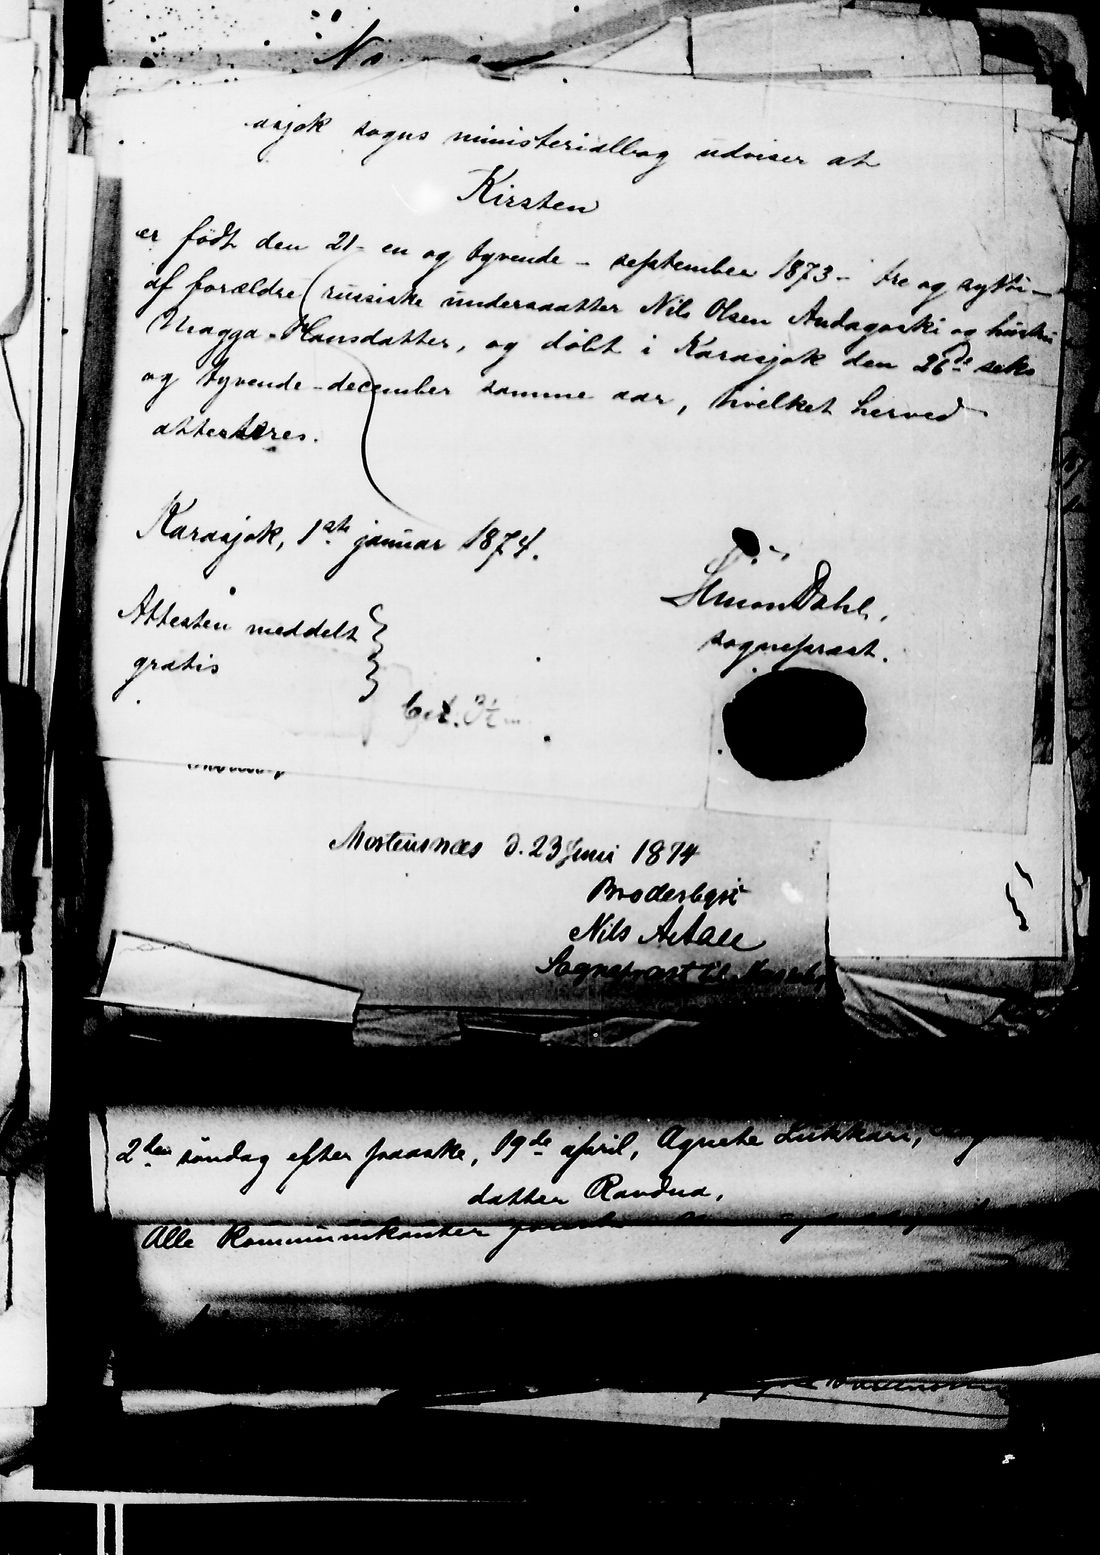 No
asjok sogns ministerialbog udviser at
Kirsten
er født den 21 - en og tyvende - september 1873 - tre og sytti -
af forældre russiske undersaatter Nils Olsen Andagoski og hustru
Magga Hansdatter, og døbt i Karasjok den 26de seks
og tyvende - december samme aar, hvilket herved
attesteres.
Karasjok, 1ste januar 1874.
Simon Dahl,
sogneprest.
Attesten meddelt
gratis
Mortensnæs d. 23 Juni 1874
Nils
Sogneprest til
2den søndag efter paaske, 19de april, Agnete Lukkari,
datter Ravdna,
Alle Kommunikanter